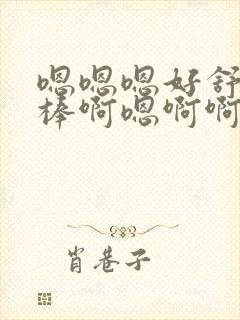 嗯嗯嗯好舒
棒啊嗯啊啊
肖巷子